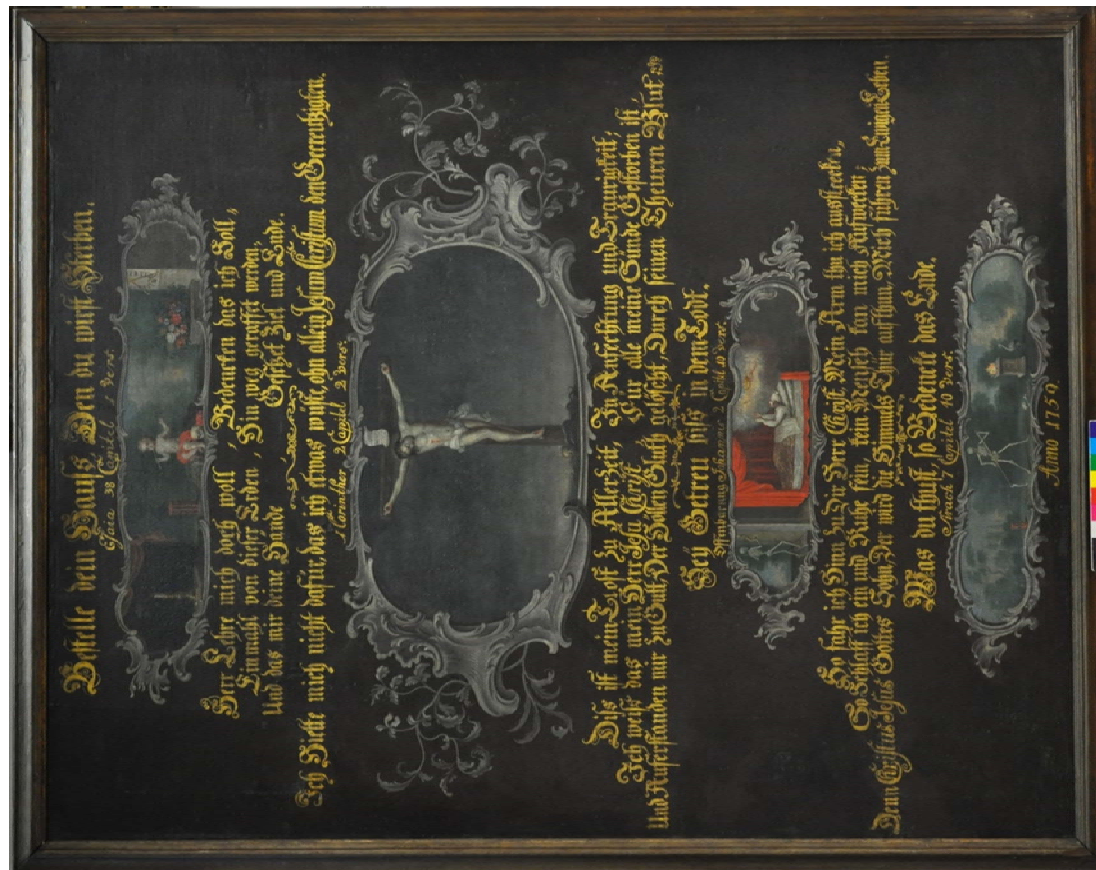 Bestelle dein Hauß, Den du wirst Sterben.
Esaia 38 Capitel 1 Vers.
Herr Lehre mich doch woll, Bedencken das ich Soll,
Einmahl von dieser Erden, Hin weg gerafft werden,
Und das mir deine Hände Gesetzet Ziel und Ende.
Ich Hielte mich nicht dafür, das ich etwas wüste, ohn allein Jesum Christum den Gecreutzigten.
1 Corinther 2 Capitel 2 Vers.
Diß ist mein Trost zu Allerzeit, In Anfechtung und Traurigkeit,
Ich weiß das mein Herr Jesu Christ Für alle meine Sünde Gestorben ist
Und Auferstanden mir zu Gut, Der Höllen Gluth gelöscht, Durch seinen Theuren Blut
Sey Getreu biß in den Todt.
Offenbarung Johannes 2 Capitel 10 Vers.
So fahr ich Hinn zu Dir Herr Christ, Mein Arm thu ich ausstrecken,
So Schlaff ich ein und Ruhe fein, kein Mensch kan mich Aufwecken,
Denn Christus Jesus Gottes Sohn, Der wird die Himmels Thür aufthun, Mich führen zum Ewigen Leben.
Was du thust, so Bedencke das Ende.
Sirach 7 Capitel 40 Vers.
Anno 1759